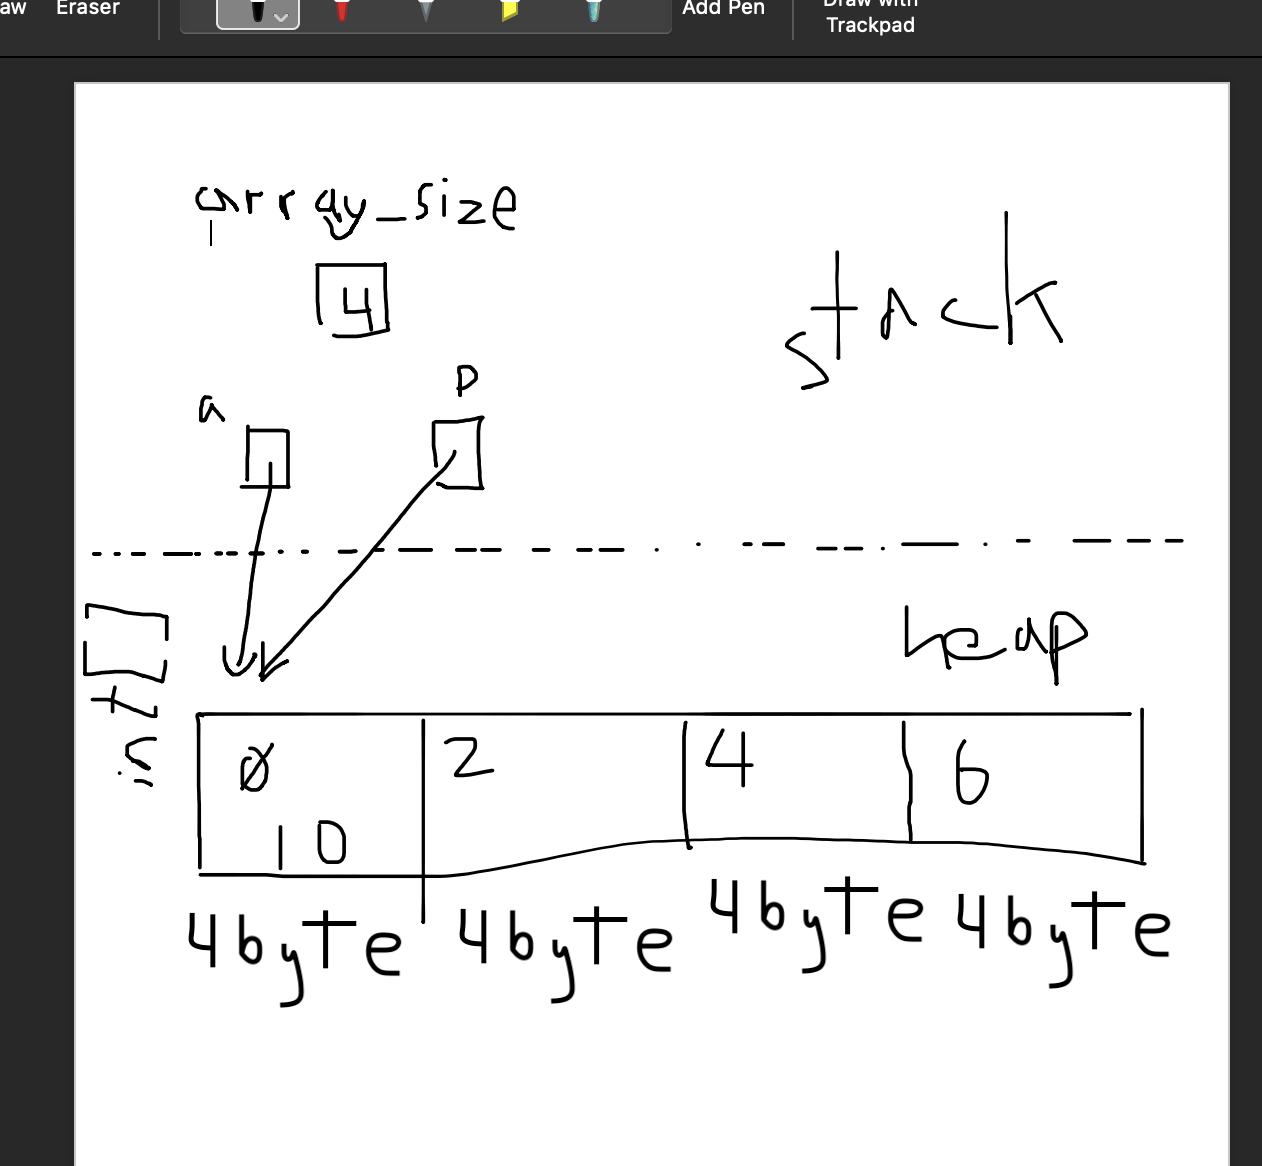 aw Eraser Add Pen Draw with
Trackpad
array_size
4
stack
p
a
heap
int[]
0 2 4 6
10
4byte 4byte 4byte 4byte